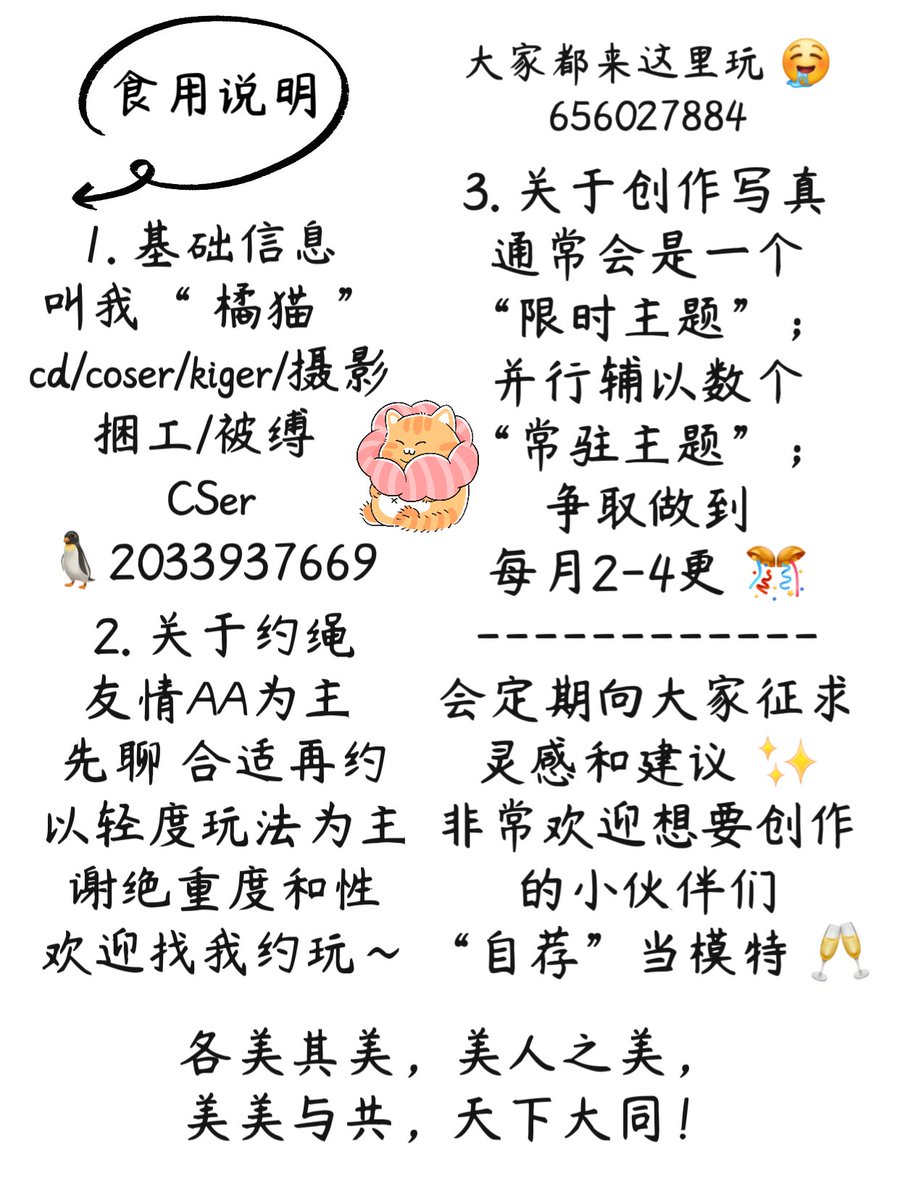 食用说明
1. 基础信息
叫我 “ 橘猫 ”
cd/coser/kiger/摄影
捆工/被缚
CSer
2033937669
2. 关于约绳
友情AA为主
先聊 合适再约
以轻度玩法为主
谢绝重度和性
欢迎找我约玩～
大家都来这里玩
656027884
3. 关于创作写真
通常会是一个
“限时主题”；
并行辅以数个
“常驻主题”；
争取做到
每月2-4更
------------
会定期向大家征求
灵感和建议
非常欢迎想要创作
的小伙伴们
“自荐”当模特
各美其美，美人之美，
美美与共，天下大同！